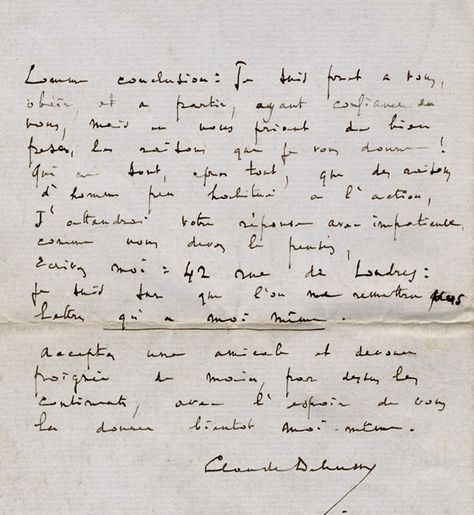 Comme conclusion : Je suis pret a vous,
obéir, et a partir, ayant confiance en
vous, mais en vous priant de bien
peser, les raisons que je vous donne !
Qui ne sont, apres tout, que des raisons
d'homme peu habitué a l'action,
J'attendrai votre réponse avec impatience,
comme vous devez le penser,
Ecrivez moi : 42 rue de Londres :
je suis sur que l'on ne remettra vos
lettres qu'a moi même.
Acceptez une amicale et devouee
poignée de mains, par dessus les
continents, avec l'espoir de vous
la donner bientot moi-même.
Claude Debussy